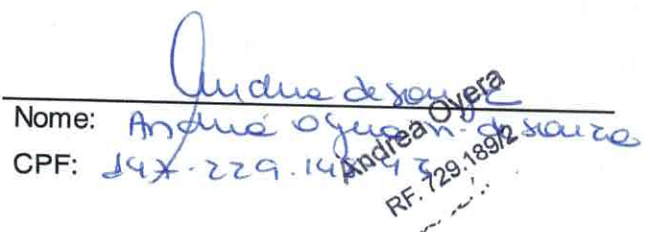 Andrea de Souza
Nome: Andrea Oyera N. de Souza
CPF: 147.229.148
Andrea Oyera
RF. 729.189/2